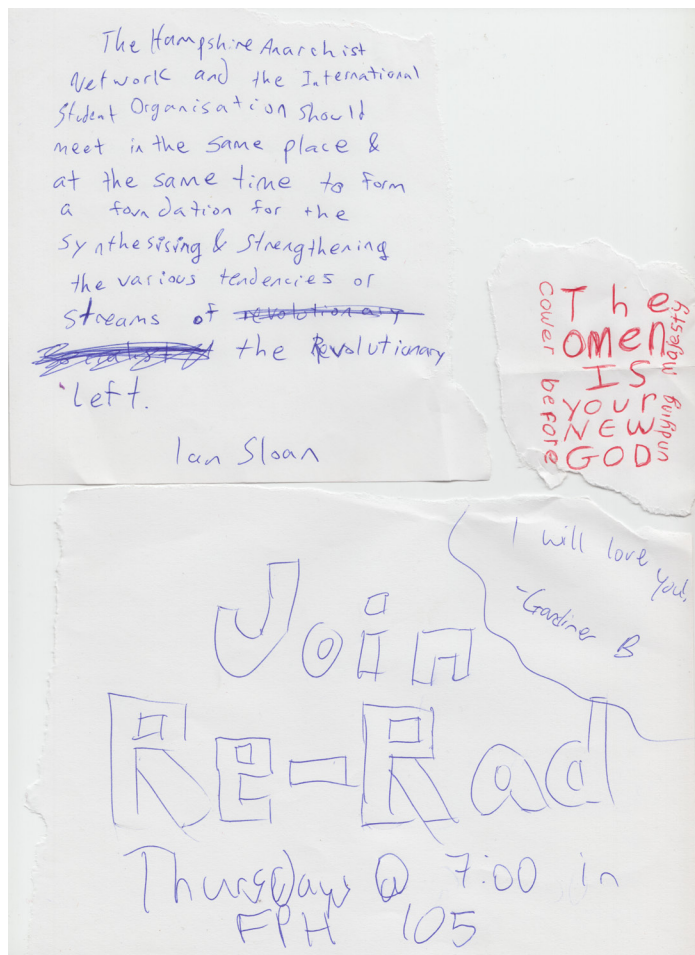 The Hampshire Anarchist
Network and the International
Student Organisation should
meet in the same place &
at the same time to form
a foundation for the
synthesising & strengthening
the various tendencies or
streams of revolutionary
the Revolutionary
Left.
Ian Sloan
The
omen
IS
your
NEW
GOD
cower before
undying Majesty
I will love
you!
-Gardiner B
Join
Re-Rad
Thursdays @ 7:00 in
FPH 105